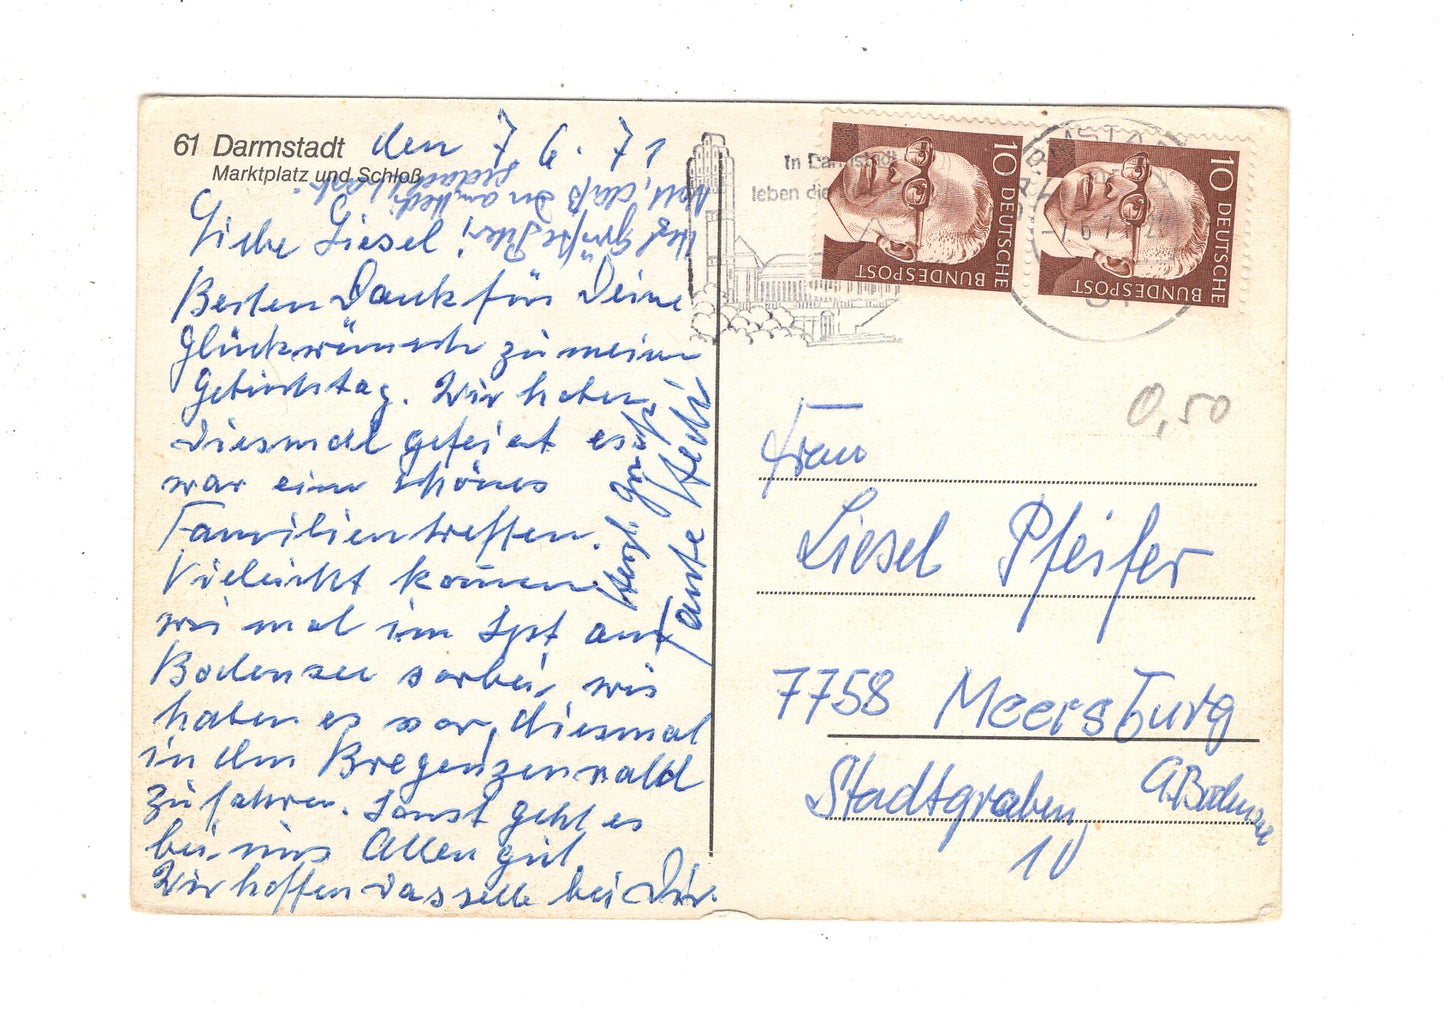 61 Darmstadt
Marktplatz und Schloß
den 7 6. 71
Liebe Liesel!
Besten Dank für Deine
Glückwünsche zu meinem
Geburtstag. Wir haben
diesmal gefeiert es
war ein schönes
Familientreffen.
Vielleicht kommen
wir mal im Spt am
Bodensee vorbei, wir
haben es vor, diesmal
in den Bregenzerwald
zu fahren. Sonst geht es
bei uns Allen gut.
Wir hoffen dasselbe bei Dir.
Herzl. Grüße
Tante Hedi
nett, daß Du an Hedi
gedacht hast.
In Darmstadt
leben die
10 DEUTSCHE
BUNDESPOST
10 DEUTSCHE
BUNDESPOST
0,50
Frau
Liesel Pfeifer
7758 Meersburg
a. Bodensee
Stadtgraben
10